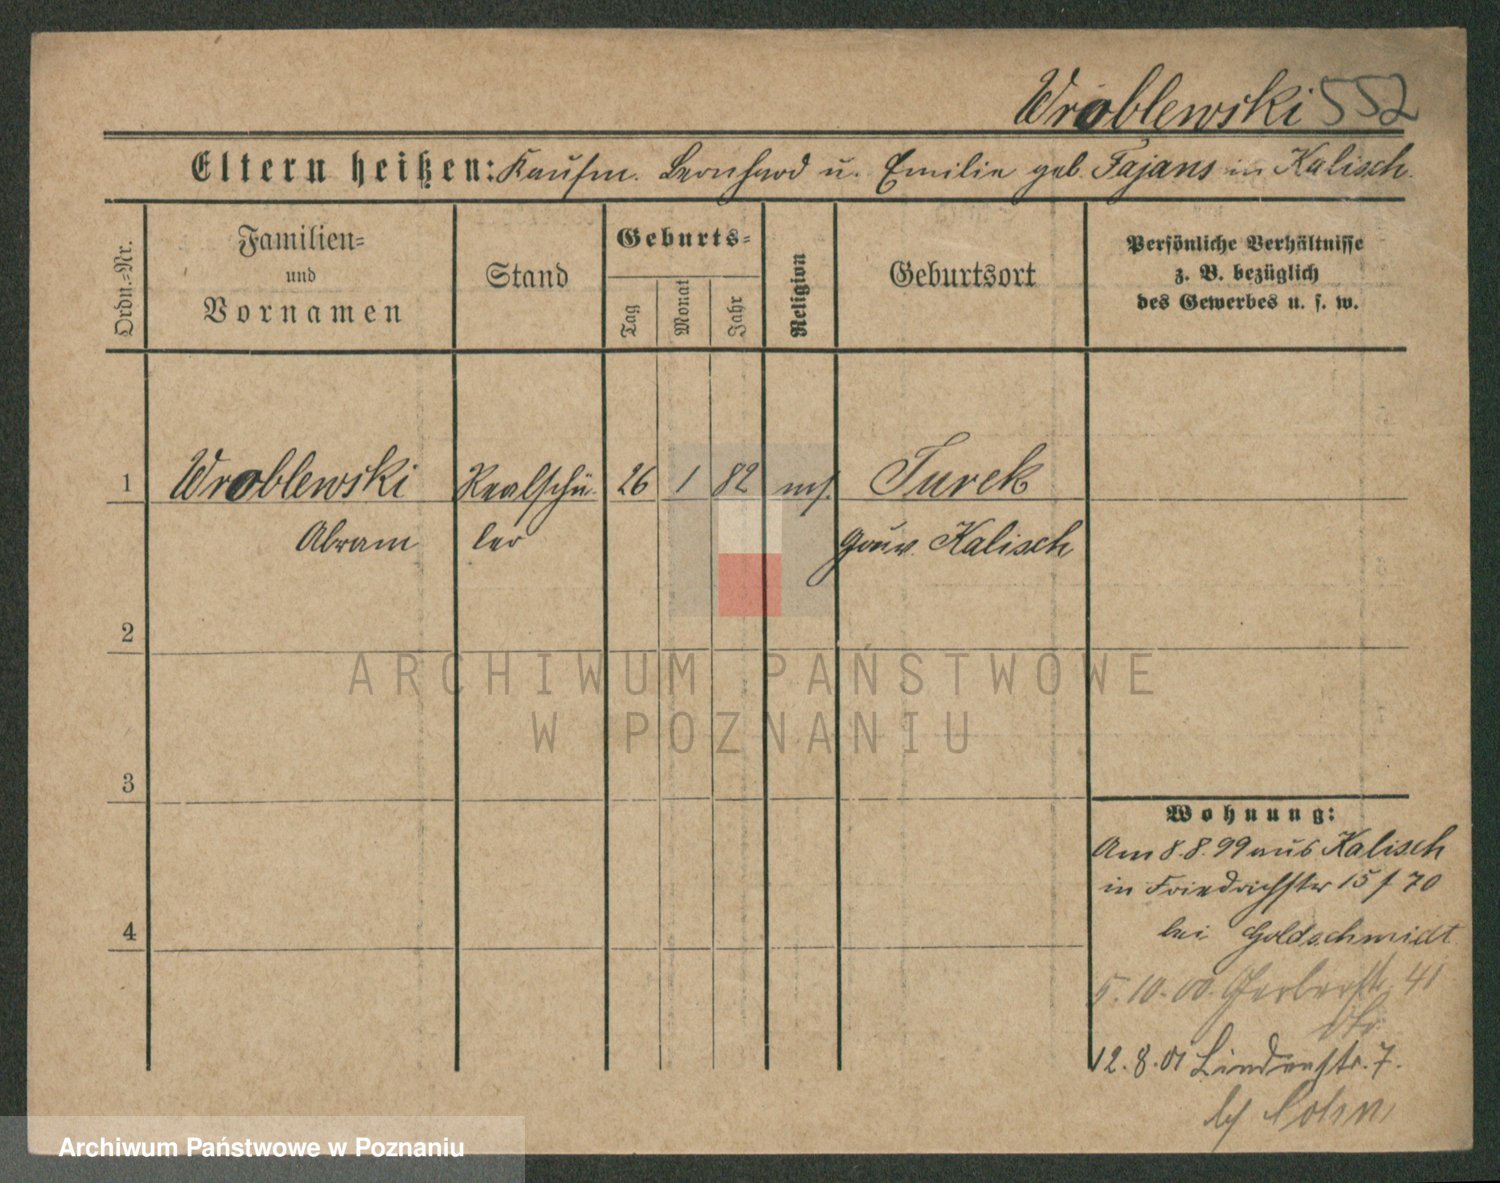 Wroblewski 552
Eltern heißen: Kaufm. Bernhard u. Emilie geb. Fajans in Kalisch.
Ordn.=Nr.
Familien=
und
Vornamen
Stand
Geburts=
Tag
Monat
Jahr
Religion
Geburtsort
Persönliche Verhältnisse
z. B. bezüglich
des Gewerbes u. s. w.
1 Wroblewski Realschü- 26 1 82 mos. Turek
Abram ler Gouv. Kalisch
2
ARCHIWUM PAŃSTWOWE
W POZNANIU
3
Wohnung:
Am 8.8.99 aus Kalisch
in Friedrichstr 15 / 70
4
bei Goldschmidt
5.10.00. Gerberstr. 41
12.8.01 Lindenstr. 7.
bei Cohn
Archiwum Państwowe w Poznaniu